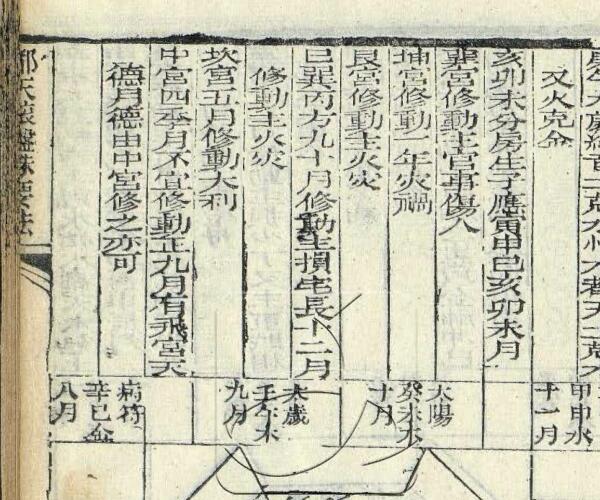 又火克金
亥卯未分房生子應寅申巳亥卯未月
巽宮修動主官事傷人
坤宮修動一年火禍
艮宮修動主火災
巳巽丙方九十月修動主損宅長十二月
修動主火災
坎宮五月修動大利
中宮四季月不宜修動正九月有飛宮天
德月德由中宮修之亦可
甲申水
十一月
太陽
癸未木
十月
太歲
壬午木
九月
病符
辛巳金
八月